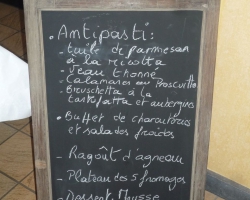 • Antipasti :
- tuile de parmesan
à la ricotta
- veau thonné
- Calamares au Proscuitto
- Bruschetta à la
et aubergines
• Buffet de charcuteries
et salades froides
- Ragoût d'agneau
- Plateau des 5 fromages
- Dessert Mousse